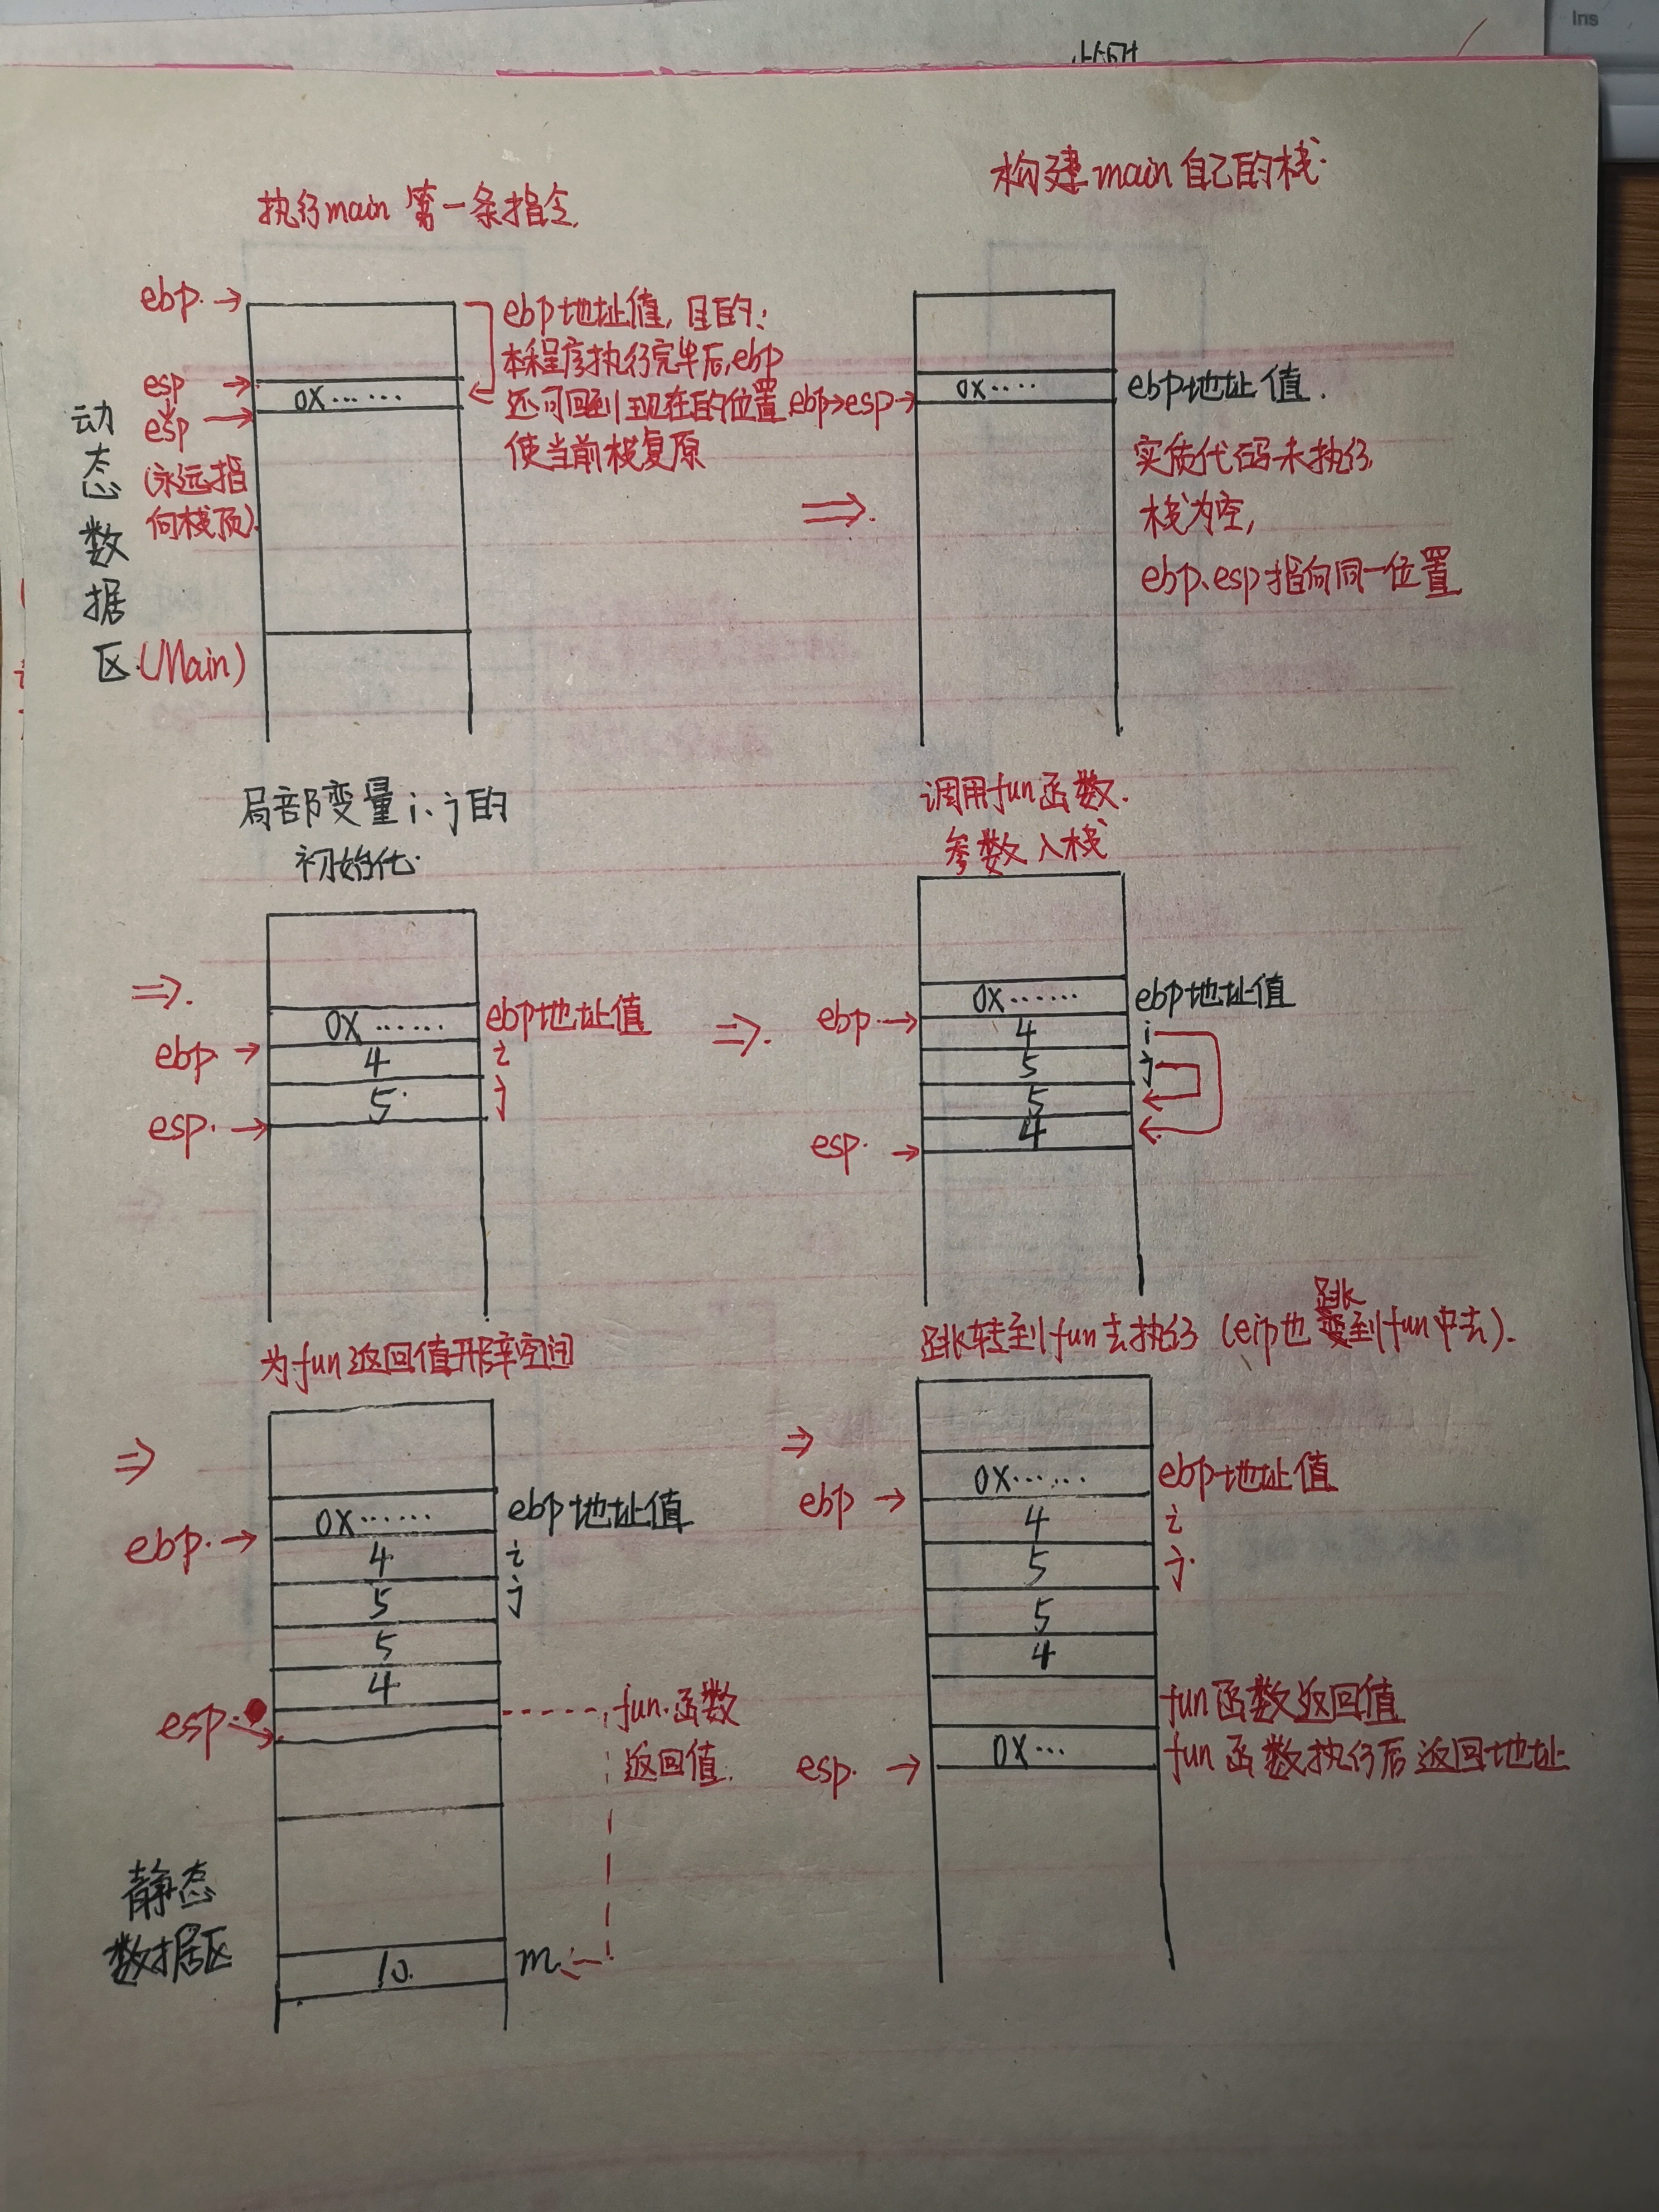 Ins
执行main 第一条指令.
ebp. →
esp →
esp →
(永远指
向栈顶).
动态数据区(Main)
0X……
ebp地址值, 目的:
本程序执行完毕后,ebp
还可回到现在的位置
使当前栈复原
⇒.
构建main自己的栈.
ebp→esp→
0X····
ebp地址值.
实质代码未执行,
栈为空,
ebp、esp指向同一位置
局部变量i、j的
初始化.
⇒.
0X…… ebp地址值
ebp. →
4 i
5 j
esp. →
⇒.
调用fun函数.
参数入栈
0X…… ebp地址值
ebp. →
4 i
5 j
5
4
esp. →
为fun返回值开辟空间
⇒
0X…… ebp地址值
ebp. →
4 i
5 j
5
4
esp. →
fun.函数
返回值.
静态
数据区
10. m
跳转到fun去执行 (eip也跳到fun中去).
⇒
0X…… ebp地址值
ebp →
4 i
5 j.
5
4
fun函数返回值
0X… fun函数执行后返回地址
esp. →